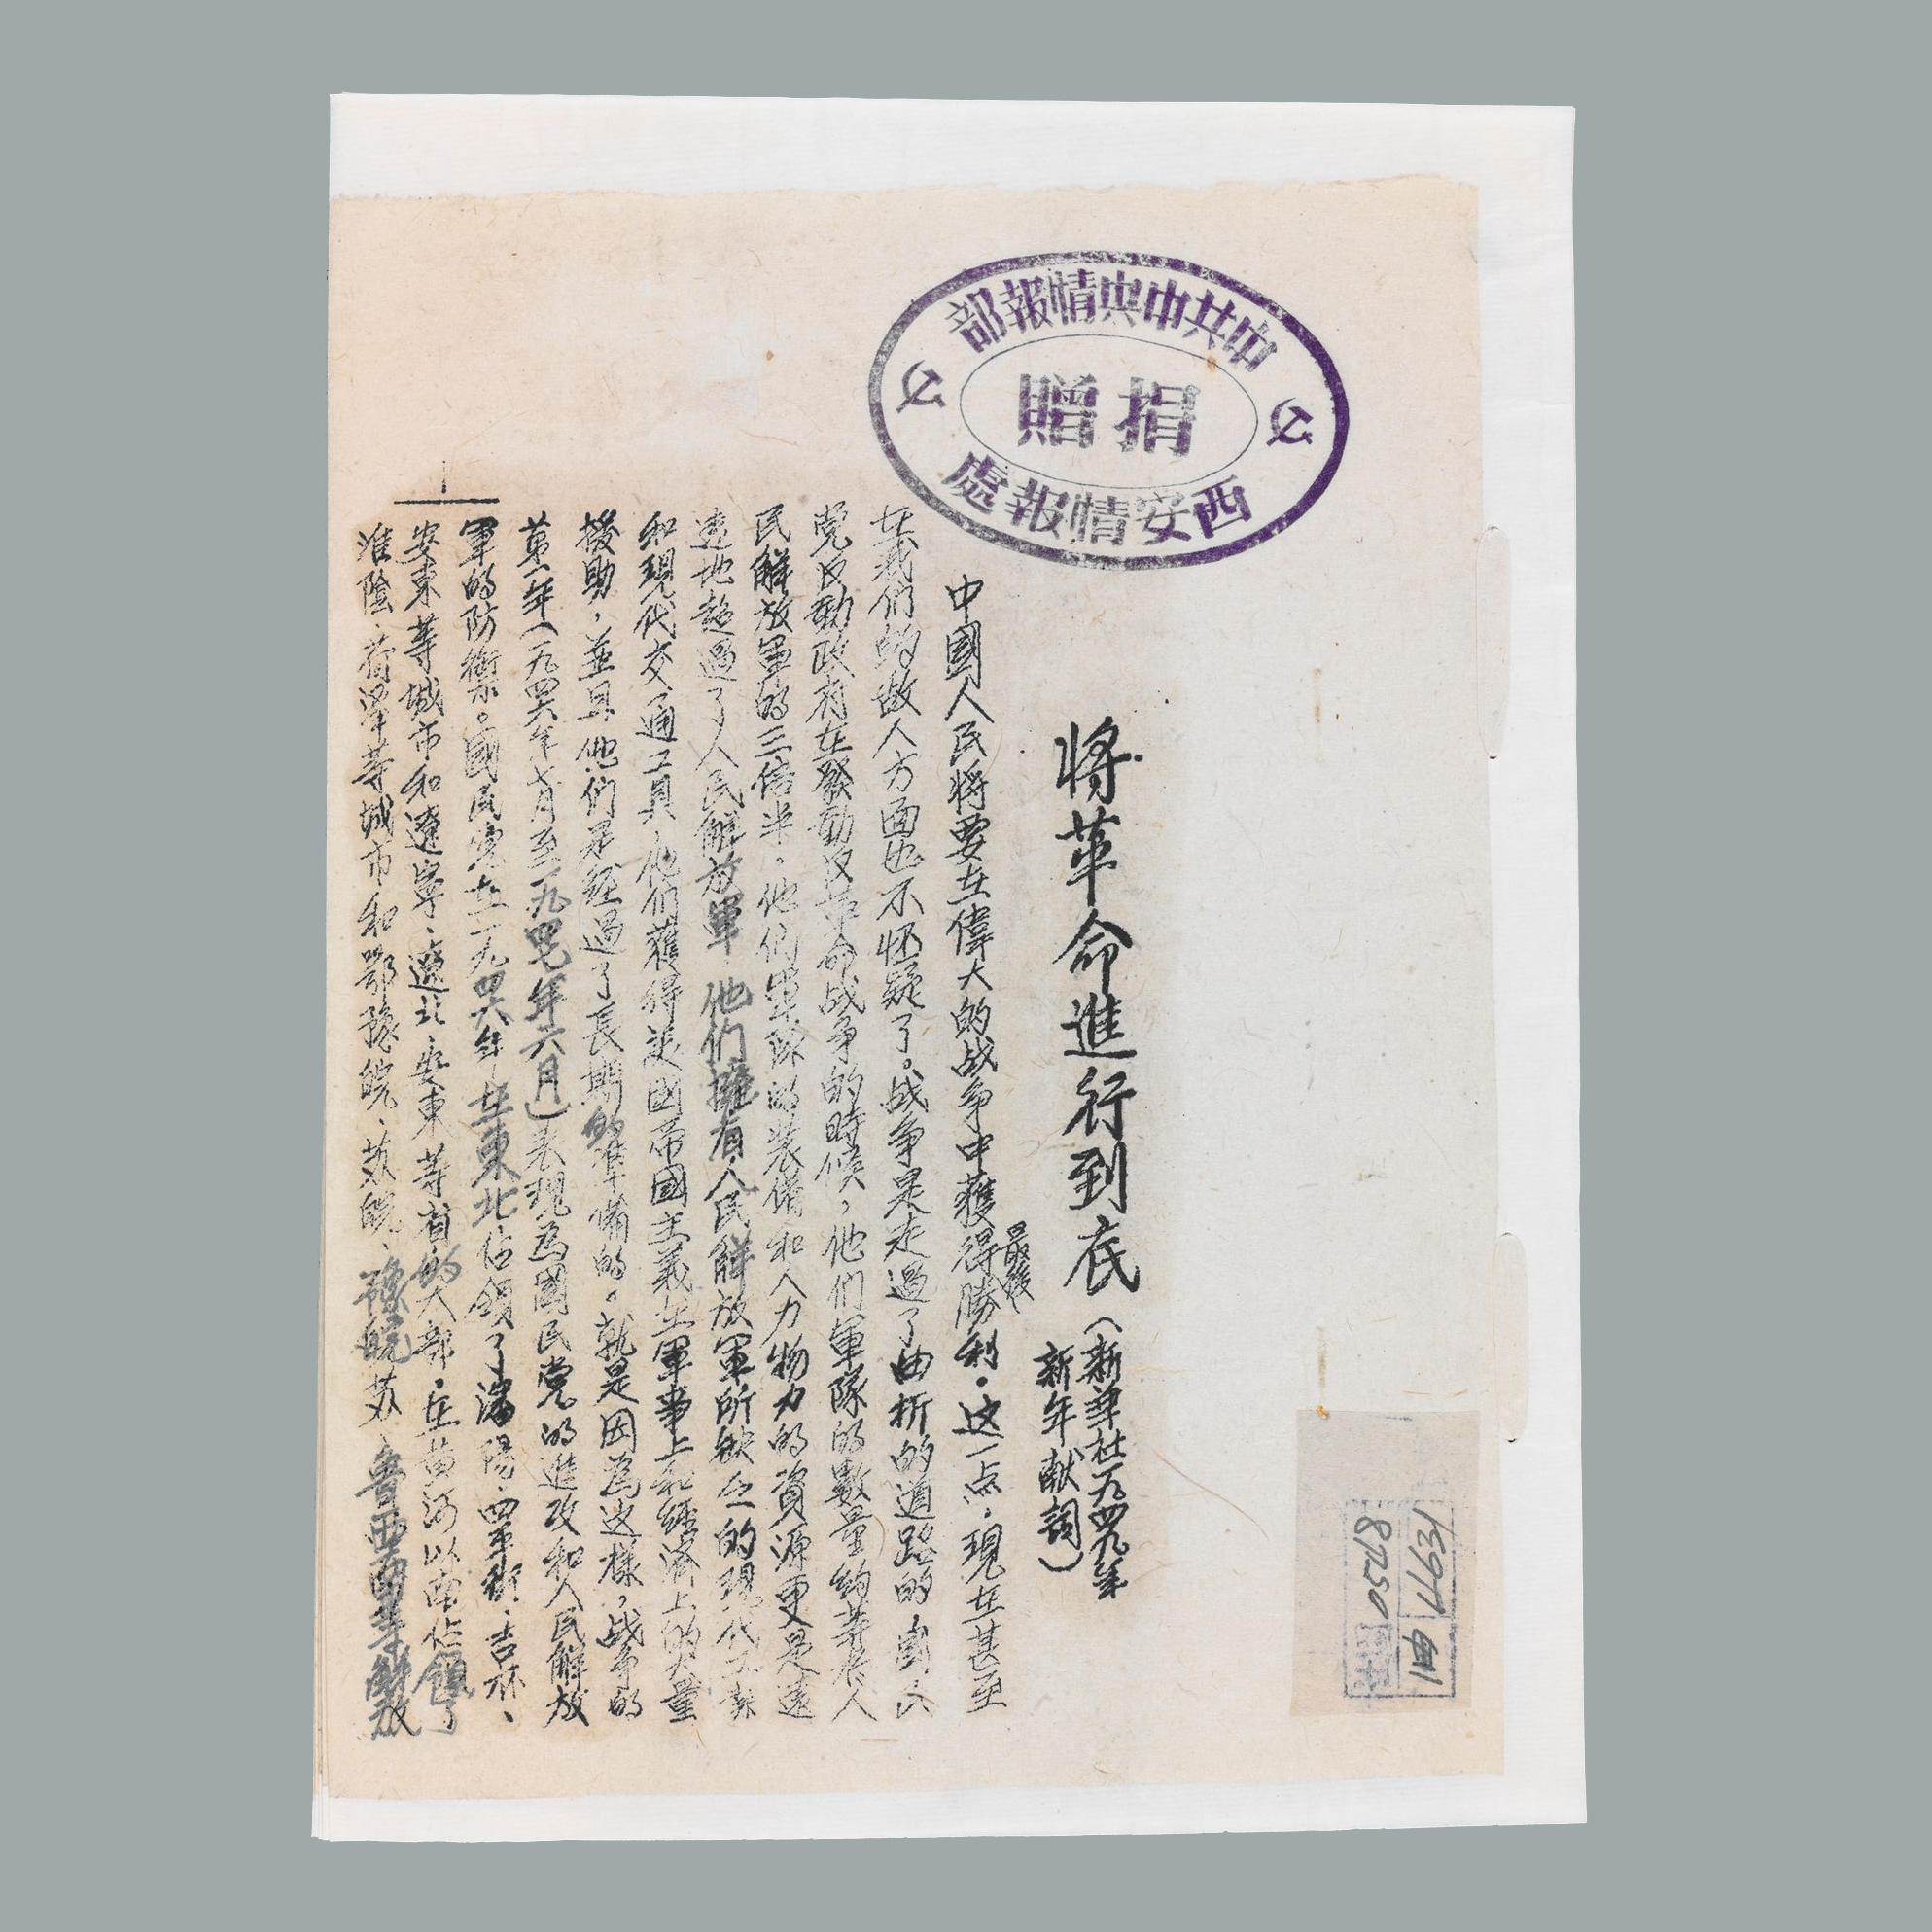 中共中央情報部
捐贈
西安情報處
將革命進行到底（新華社一九四九年
新年献詞）
最後
中國人民將要在偉大的战争中獲得勝利。这一点，現在甚至
在我們的敌人方面也不怀疑了。战争是走過了曲折的道路的。國民
党反動政府在發動反革命战争的時候，他們軍隊的數量約等於人
民解放軍的三倍半，他們軍隊的装備和人力物力的資源更是遠
遠地超過了人民解放軍，他們擁有人民解放軍所缺乏的現代工業
和現代交通工具，他們獲得美國帝國主義在軍事上和經濟上的大量
援助，並且他們是經過了長期的準備的。就是因為这樣，战争的
第一年（一九四六年七月至一九四七年六月）表現為國民党的進攻和人民解放
軍的防禦。國民党在一九四六年在東北佔領了瀋陽、四平街、吉林、
安東等城市和遼寧、遼北、安東等省的大部，在黃河以南佔領了
淮陰、菏澤等城市和鄂豫皖、苏皖、豫皖苏、魯西南等解放
1
1E977
87250